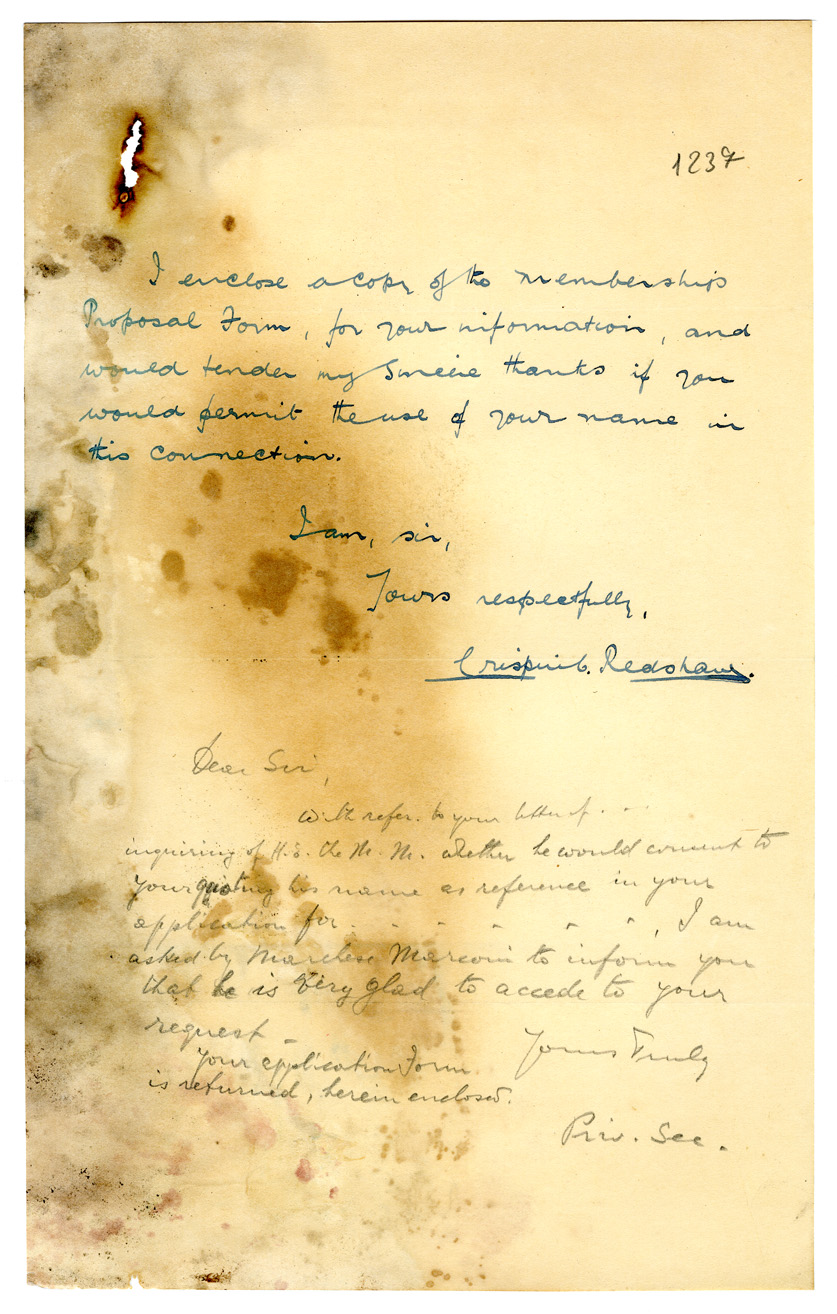 1237
I enclose a copy of the membership
Proposal Form, for your information, and
would tender my sincere thanks if you
would permit the use of your name in
this connection.
I am, sir,
Yours respectfully,
Crispin C. Redshaw.
Dear Sir,
With refer. to your letter of . . .
inquiring of H.E. the M. M. whether he would consent to
your quoting his name as reference in your
application for . . . . . . , I am
asked by Marchese Marconi to inform you
that he is very glad to accede to your
request -
Yours Truly
Your application Form
is returned, herein enclosed.
Priv. Sec.